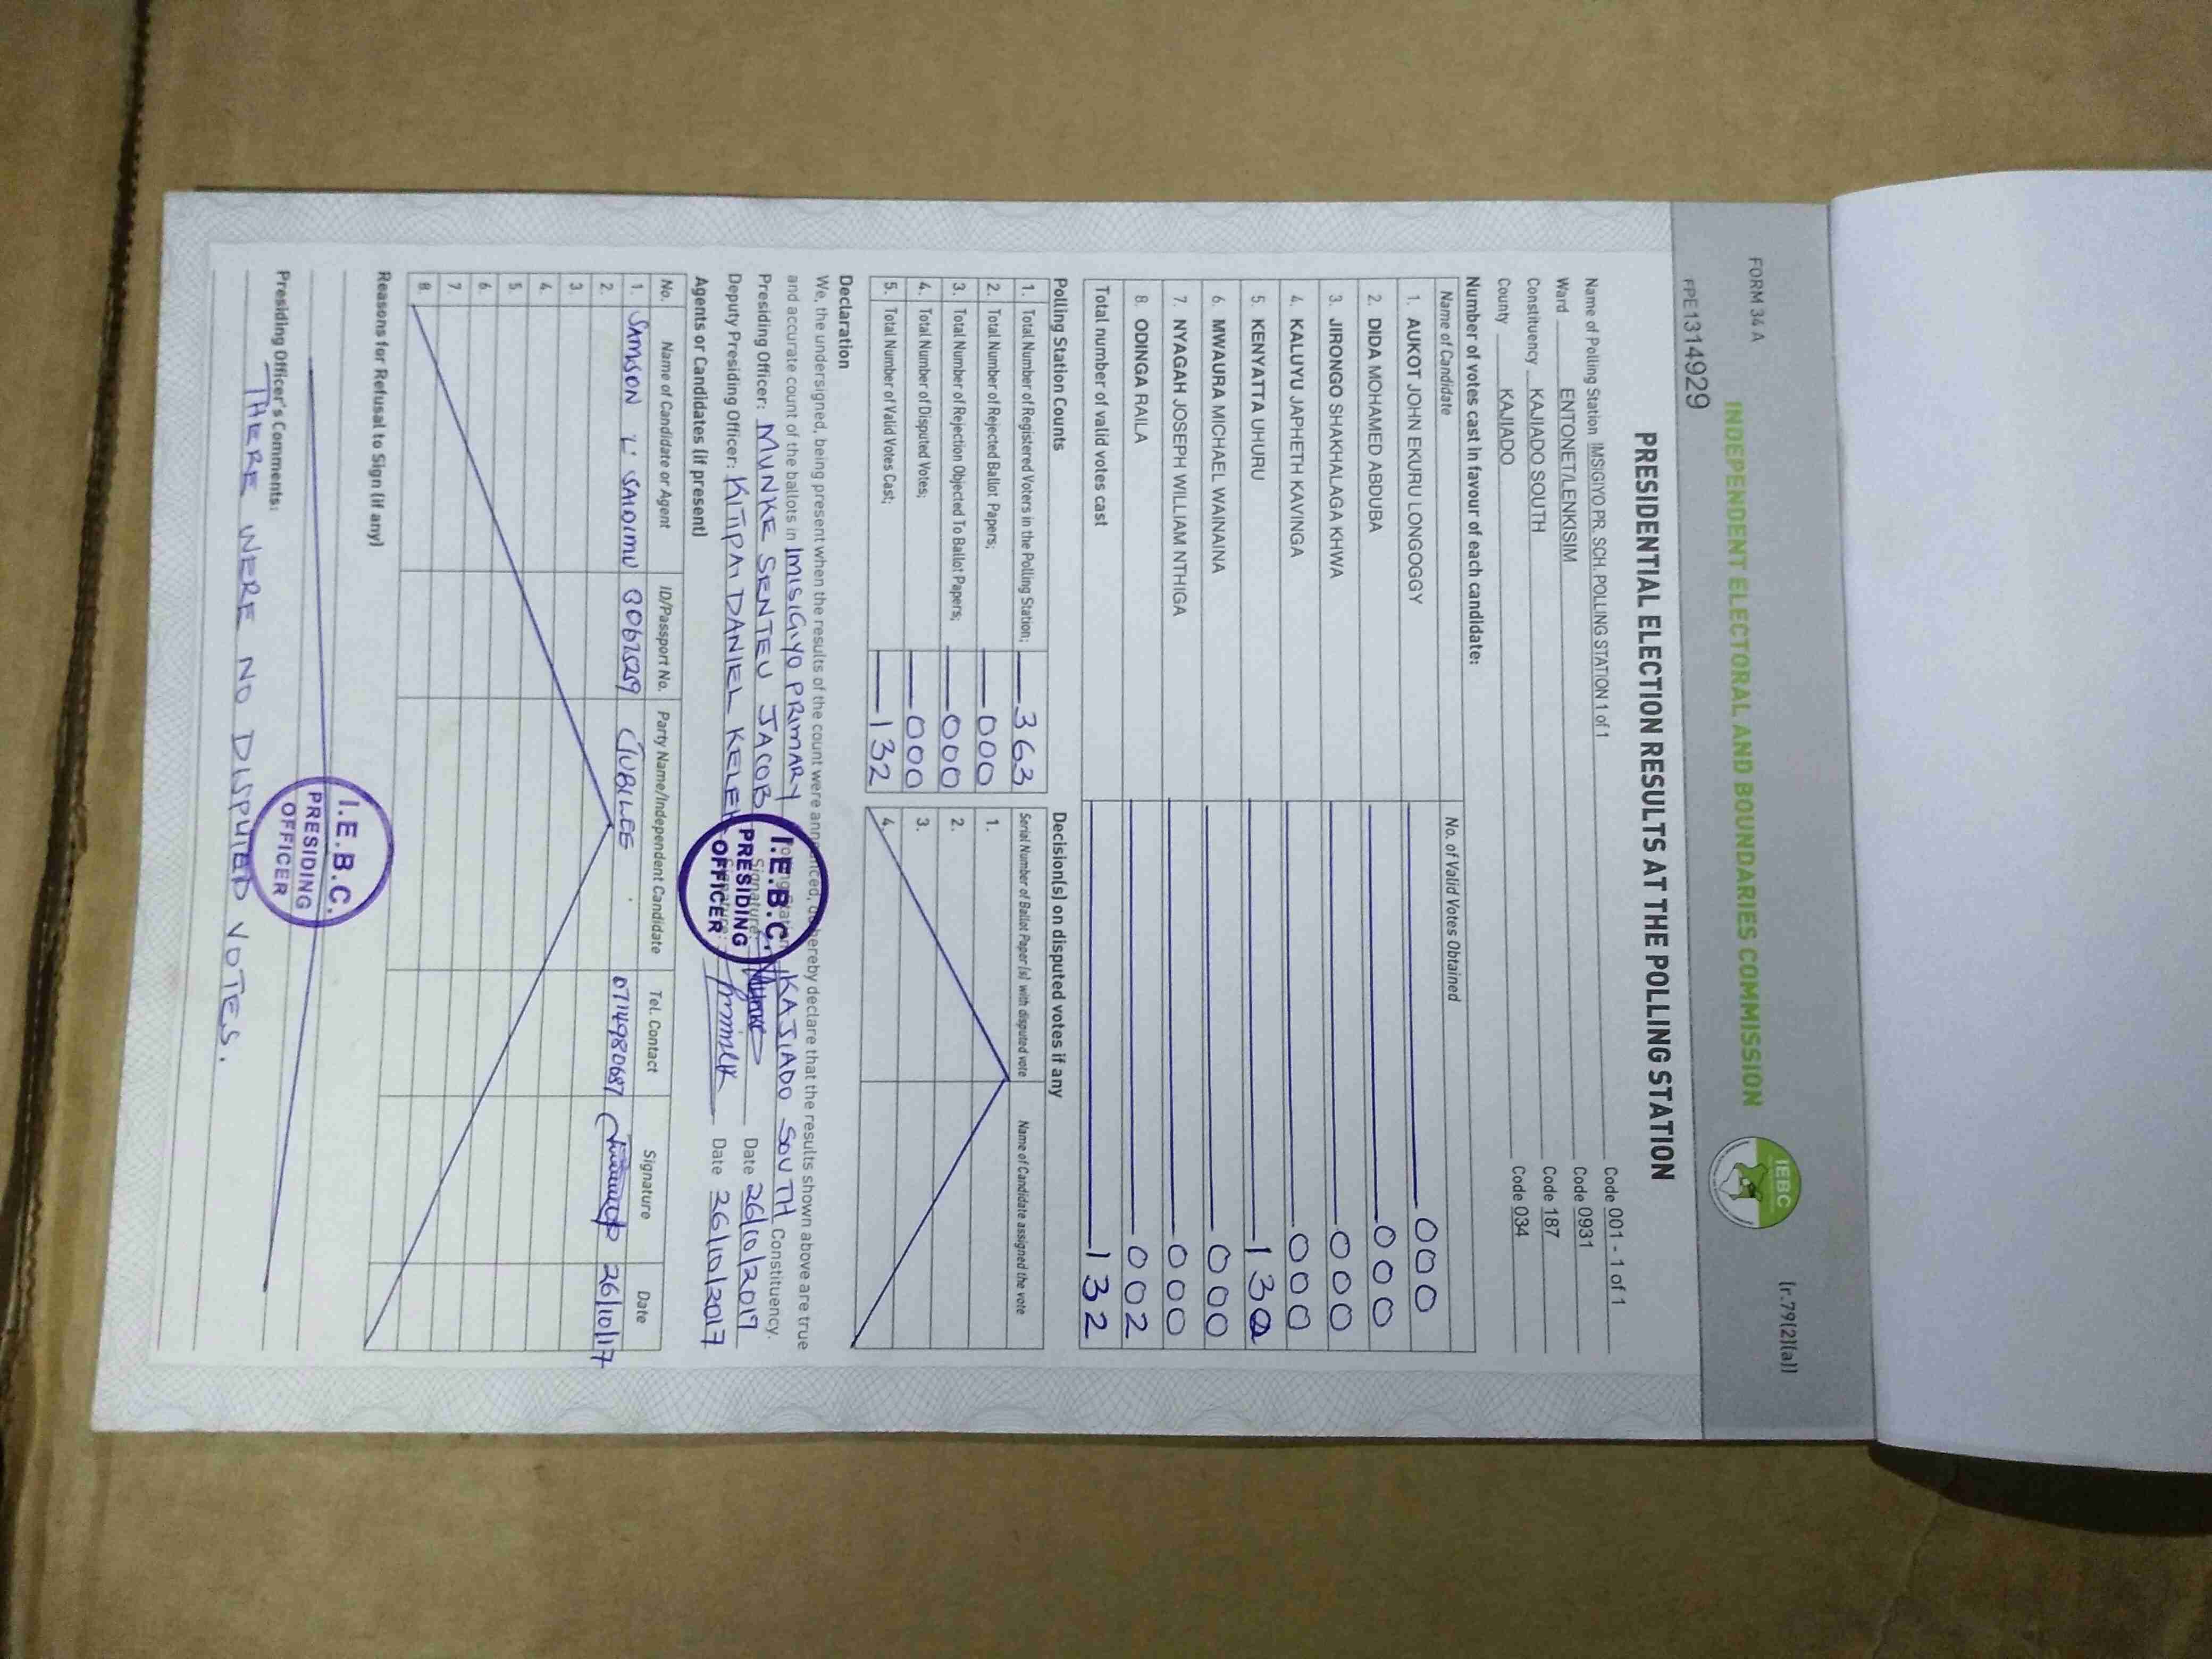 FORM 34 A
(r.79(2)(a))
INDEPENDENT ELECTORAL AND BOUNDARIES COMMISSION
IEBC
FPE1314929
PRESIDENTIAL ELECTION RESULTS AT THE POLLING STATION
Name of Polling Station IMSIGIYO PR. SCH. POLLING STATION 1 of 1 Code 001 - 1 of 1
Ward ENTONET/LENKISIM Code 0931
Constituency KAJIADO SOUTH Code 187
County KAJIADO Code 034
Number of votes cast in favour of each candidate:
Name of Candidate No. of Valid Votes Obtained
1. AUKOT JOHN EKURU LONGOGGY 000
2. DIDA MOHAMED ABDUBA 000
3. JIRONGO SHAKHALAGA KHWA 000
4. KALUYU JAPHETH KAVINGA 000
5. KENYATTA UHURU 130
6. MWAURA MICHAEL WAINAINA 000
7. NYAGAH JOSEPH WILLIAM NTHIGA 000
8. ODINGA RAILA 002
Total number of valid votes cast 132
Polling Station Counts Decision(s) on disputed votes if any
1. Total Number of Registered Voters in the Polling Station; 363 Serial Number of Ballot Paper(s) with disputed vote Name of Candidate assigned the vote
2. Total Number of Rejected Ballot Papers; 000 1.
3. Total Number of Rejection Objected To Ballot Papers; 000 2.
4. Total Number of Disputed Votes; 000 3.
5. Total Number of Valid Votes Cast; 132 4.
Declaration
We, the undersigned, being present when the results of the count were announced, do hereby declare that the results shown above are true
and accurate count of the ballots in IMISIGIYO PRIMARY Polling Station KAJIADO SOUTH Constituency.
Presiding Officer: MUNKE SENTEU JACOB Signature: Date 26/10/2017
Deputy Presiding Officer: KITIPAI DANIEL Signature: Date 26/10/2017
I.E.B.C.
PRESIDING
OFFICER
Agents or Candidates (if present)
No. Name of Candidate or Agent ID/Passport No. Party Name/Independent Candidate Tel. Contact Signature Date
1. SAMSON L. 30625259 JUBILEE 0714980687 26/10/17
2.
3.
4.
5.
6.
7.
8.
Reasons for Refusal to Sign (if any)
I.E.B.C.
PRESIDING
OFFICER
Presiding Officer's Comments:
THERE WERE NO DISPUTED VOTES.